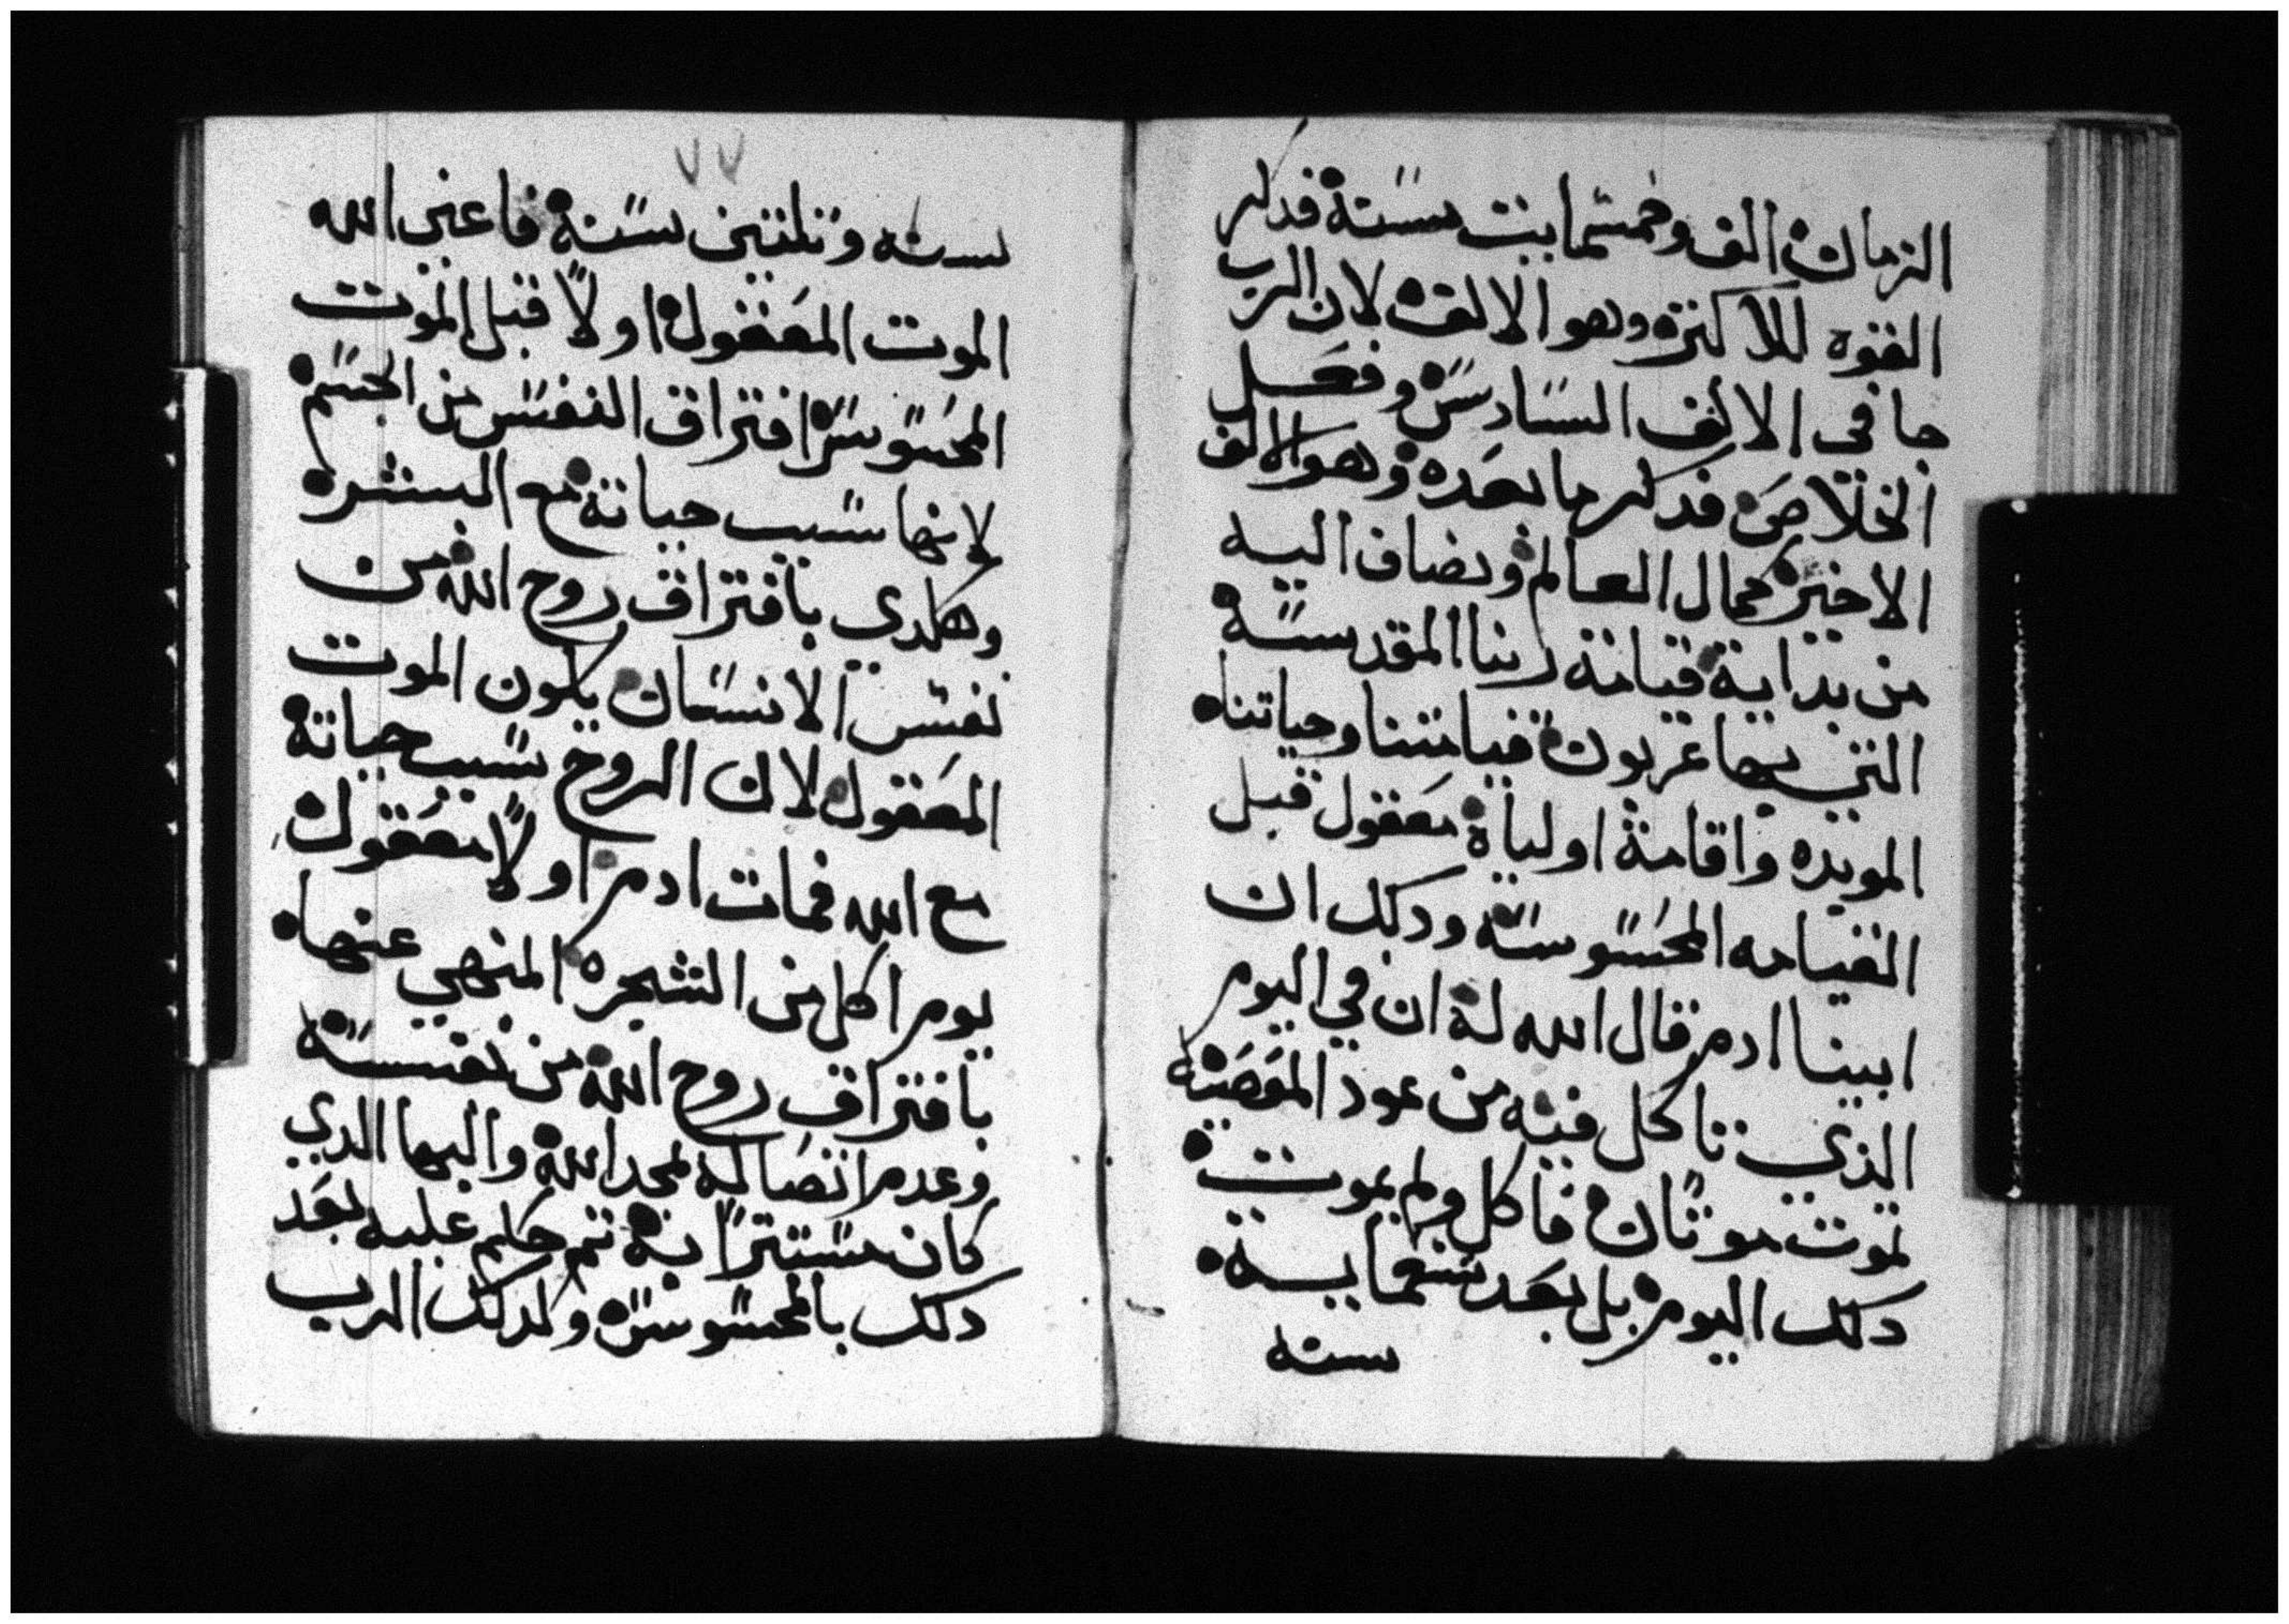 الزمان الف وخمسمايت سنة فدكر
القوه للاكثره وهو الالف لان الرب
جا في الالف السادس وفعل
الخلاص فدكر ما بعده وهو الالف
الاخير كمال العالم ويضاف اليه
من بداية قيامة ربنا المقدسة
التي بها عربون قيامتنا وحياتنا
الموبده واقامة اولياة معقول قبل
القيامه المحسوسة ودلك ان
ابينا ادم قال الله لة ان في اليوم
الذي تاكل فيه من عود المعصية
تموت موتا فاكل ولم يموت
دلك اليوم بل بعد تسعماية
سنه
٧٧
سنه وتلتين سنة فاعني الله
الموت المعقول اولاً قبل الموت
المحسوس افتراق النفس من الجسم
لانها سبب حياتة مع البشر
وهكدي بافتراق روح الله من
نفس الانسان يكون الموت
المعقول لان الروح سبب حياتة
مع الله فمات ادم اولاً معقول
يوم اكل من الشجره المنهي عنها
بافتراق روح الله من نفسة
وعدم اتصالة لمجد الله والبها الدي
كان مستتراً بة تم حكم عليه بعد
دلك بالمحسوس ولدلك الرب